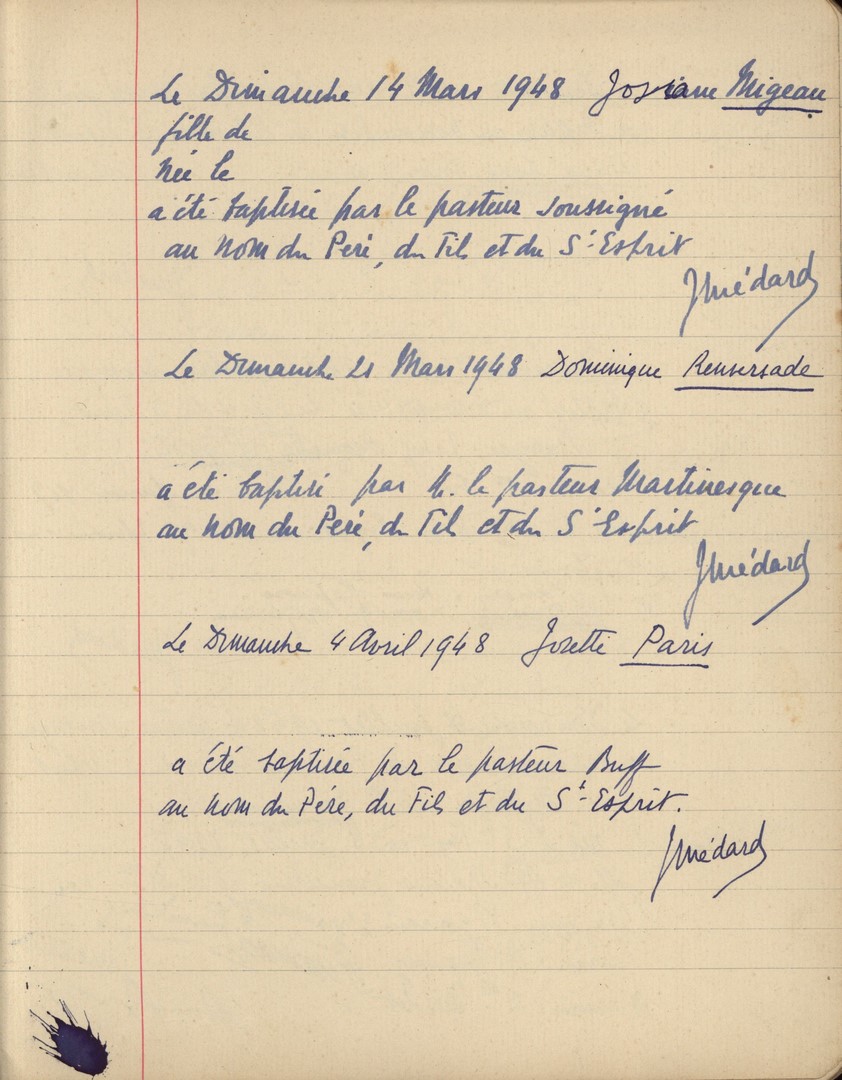 Le Dimanche 14 Mars 1948 Josiane Migeau
fille de
née le
a été baptisée par le pasteur soussigné
au nom du Père, du Fils et du St-Esprit
JMédard
Le Dimanche 21 Mars 1948 Dominique Renversade
a été baptisé par M. le pasteur Martinesque
au nom du Père, du Fils et du St Esprit
JMédard
Le Dimanche 4 Avril 1948 Josette Paris
a été baptisée par le pasteur Buff
au nom du Père, du Fils et du St-Esprit.
JMédard